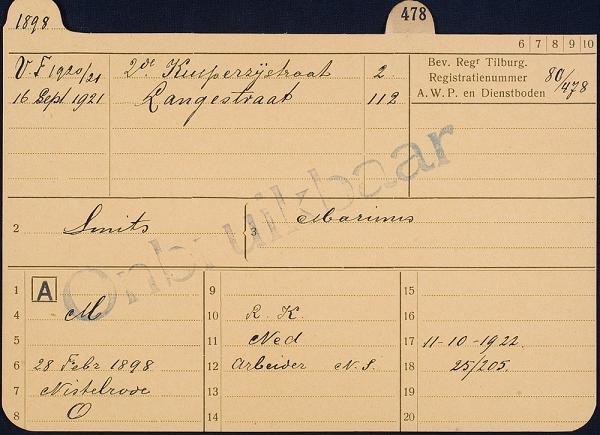 1898
478
6 7 8 9 10
V. F 1920/21 2de Kuiperzijstraat 2
16 Sept 1921 Langestraat 112
Bev. Regr Tilburg.
Registratienummer 80/478
A.W.P. en Dienstboden
Onbruikbaar
2 Smits 3 Marinus
1 A 9 15
4 M 10 R. K. 16
5 11 Ned 17 11-10-1922
6 28 Febr 1898 12 Arbeider N.S. 18 25/205.
7 Nistelrode 13 19
8 O 14 20